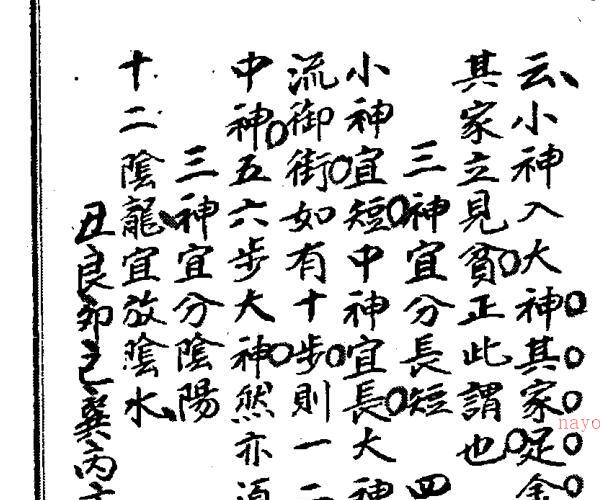 云小神入大神其家足金
其家立見貧正此謂也
三神宜分長短 四
小神宜短中神宜長大神
流御街如有十步則一二
中神五六步大神然亦須
三神宜分陰陽
十二陰龍宜放陰水
丑艮卯巳巽丙
nayo